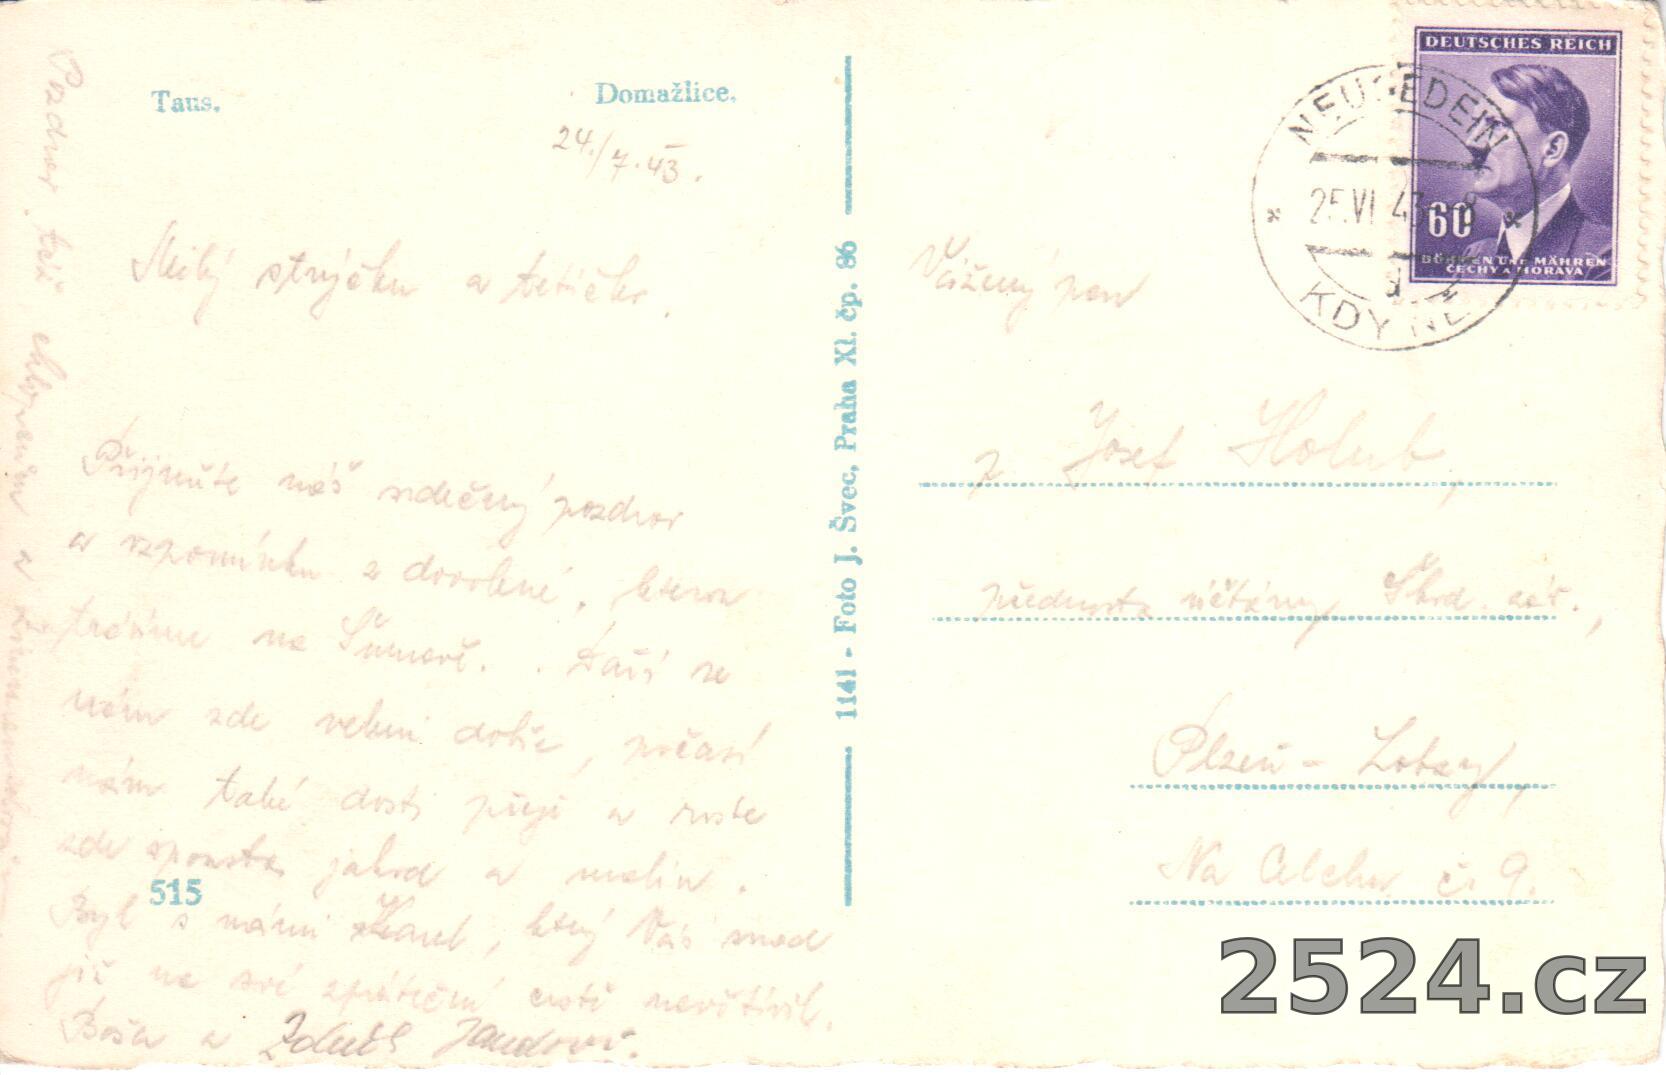 Taus.
Domažlice.
24./7.43.
Milý strýčku a tetičko.
Přijměte náš srdečný pozdrav
a vzpomínku z dovolené, kterou
trávíme na Šumavě. Daří se
nám zde velmi dobře, počasí
nám také dosti přeje a roste
zde spousta jahod a malin.
515
Byl s námi Karel, který Vás snad
již na své zpáteční cestě navštívil.
Boža a Zdeněk Jandovi.
Pozdrav též chlapcům a
1141 - Foto J. Švec, Praha XI. čp. 86
DEUTSCHES REICH
60
BÖHMEN UND MÄHREN
ČECHY A MORAVA
NEUGEDEIN
25.VI 43 -8
KDYNĚ
Vážený pan
Josef Holub,
přednosta účtárny Škod. záv.,
Plzeň - Lobzy,
Na č. 9.
2524.cz